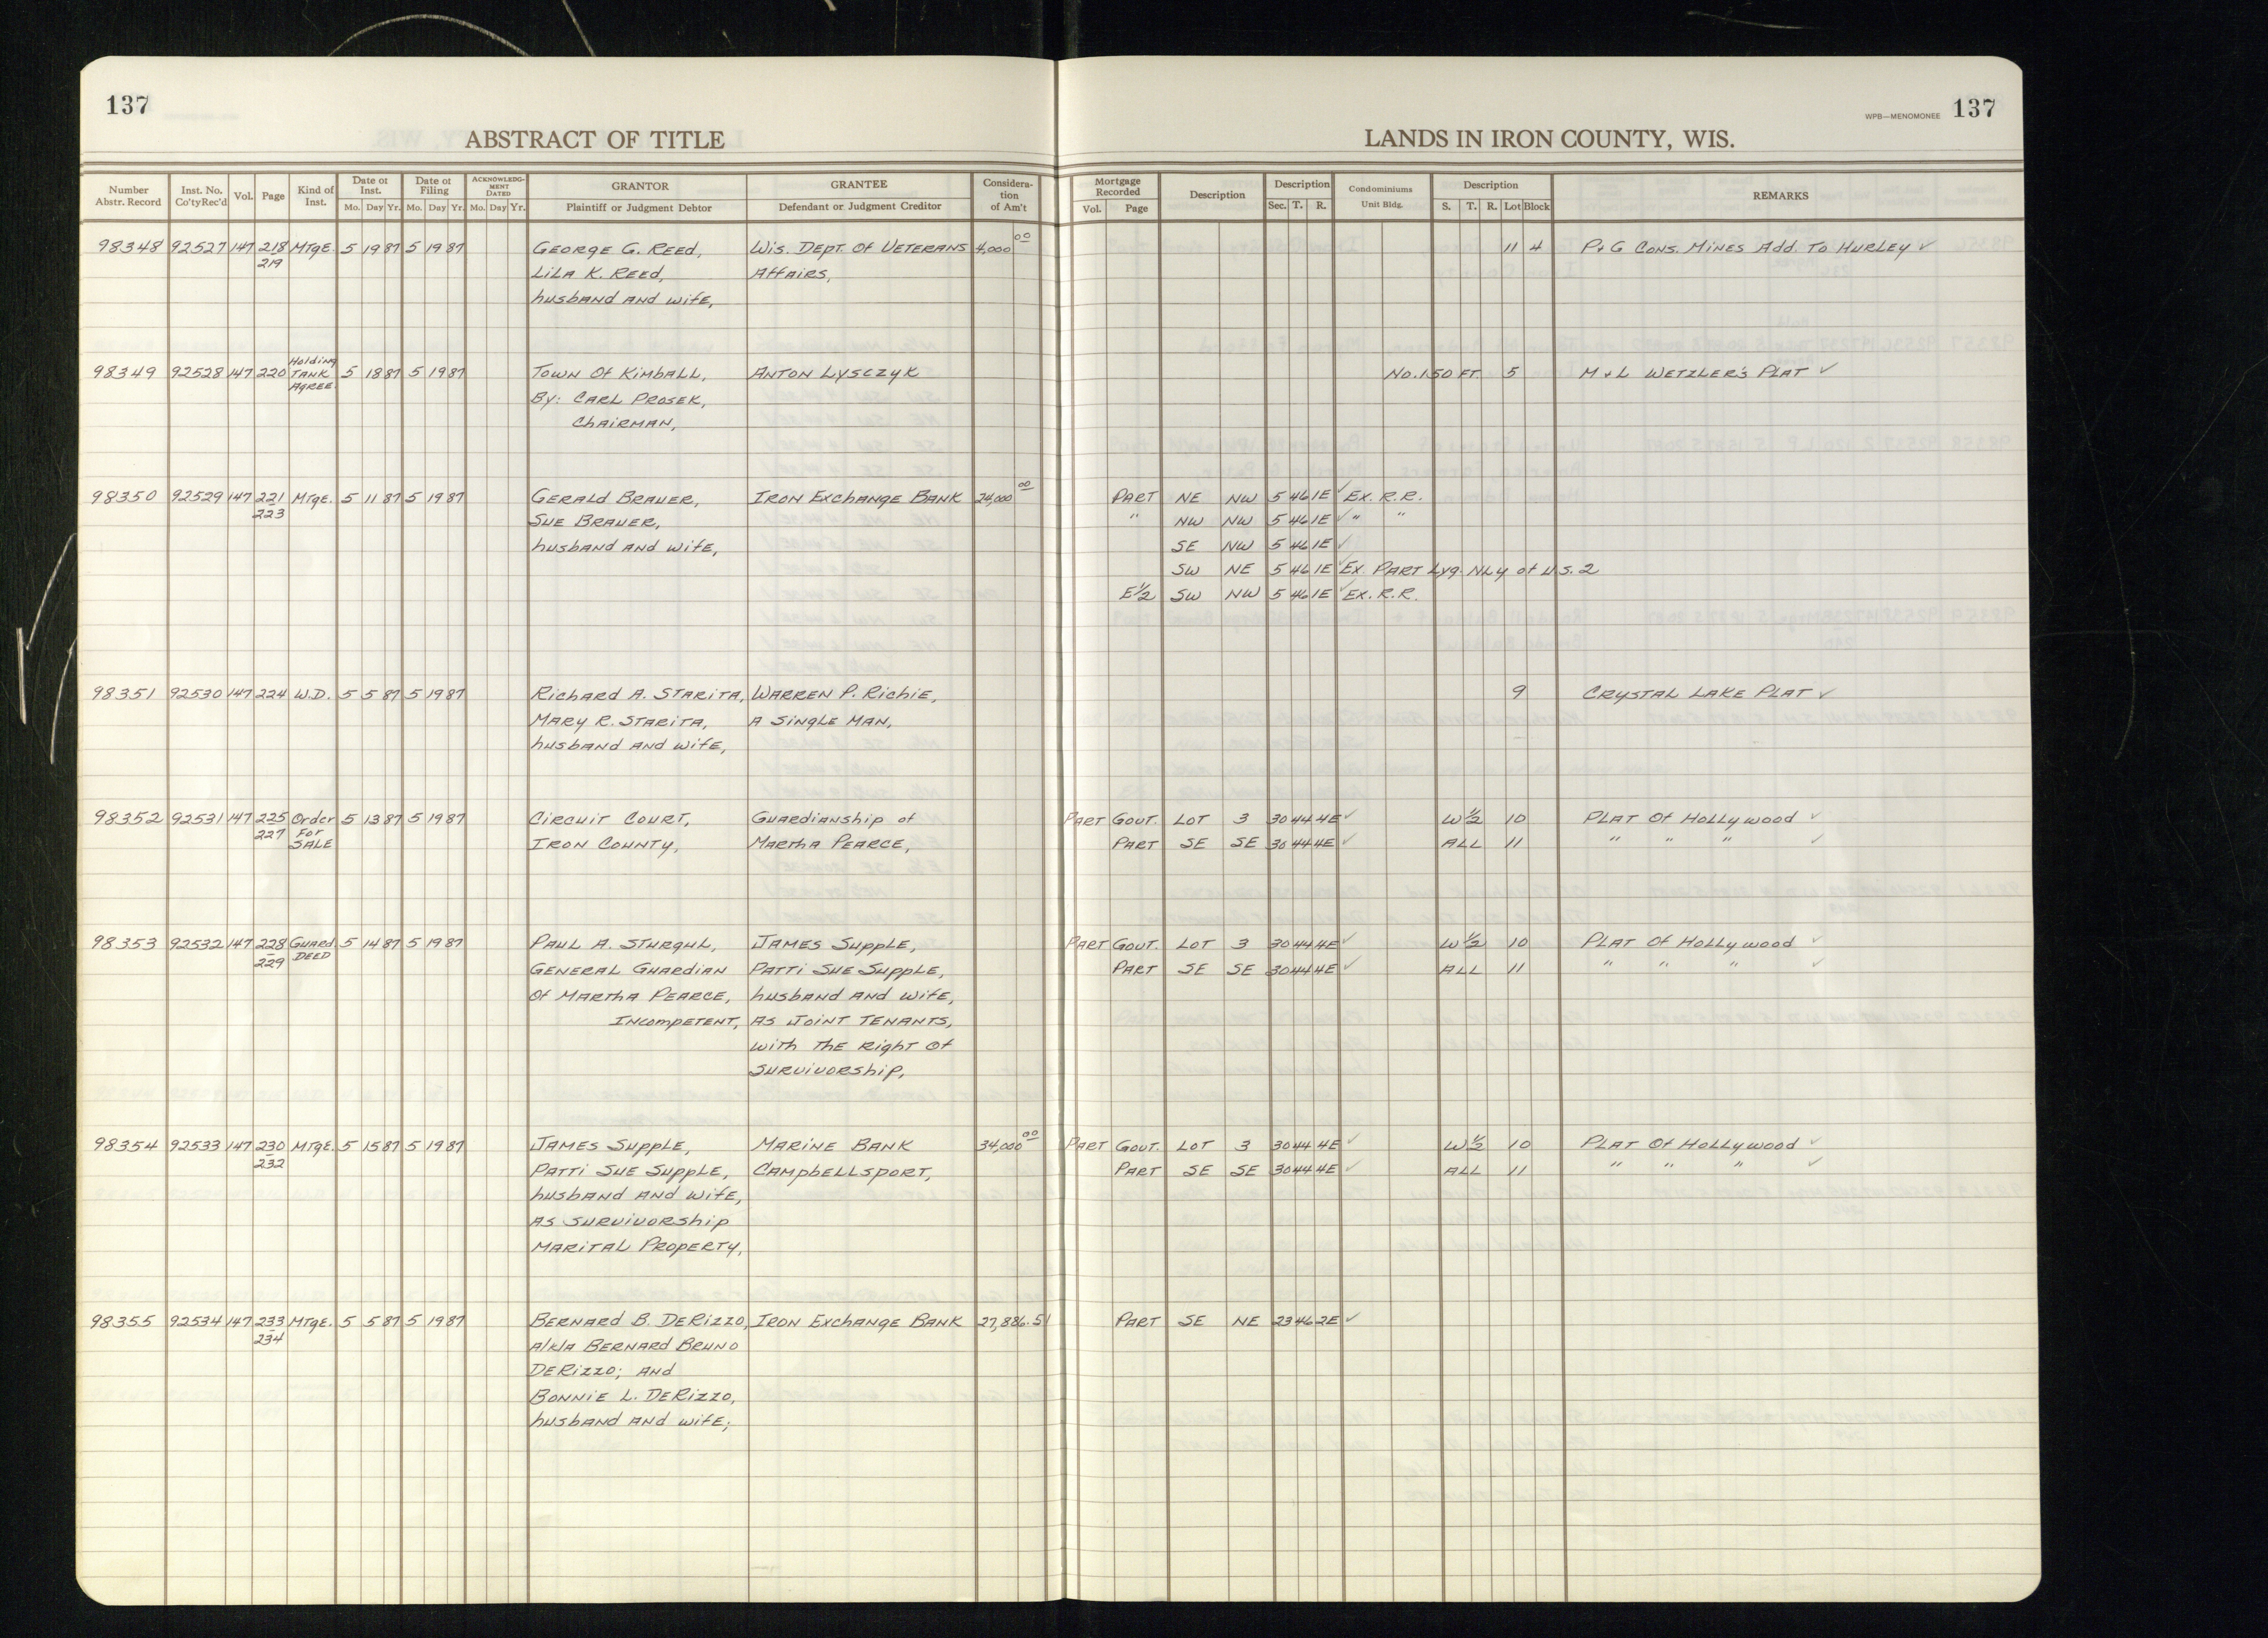 137
ABSTRACT OF TITLE
LANDS IN IRON COUNTY, WIS.
WPB—MENOMONEE 137
Number Abstr. Record | Inst. No. Co'ty Rec'd | Vol. | Page | Kind of Inst. | Date of Inst. Mo. Day Yr. | Date of Filing Mo. Day Yr. | ACKNOWLEDGMENT DATED Mo. Day Yr. | GRANTOR Plaintiff or Judgment Debtor | GRANTEE Defendant or Judgment Creditor | Consideration of Am't | Mortgage Recorded Vol. Page | Description | Description Sec. T. R. | Condominiums Unit Bldg. | Description S. T. R. Lot Block | REMARKS
98348 92527 147 218 MTGE. 5 19 87 5 19 87 GEORGE G. REED, WIS. DEPT. OF VETERANS 4,000 00 11 4 P+G CONS. MINES ADD. TO HURLEY ✓
219 LILA K. REED, AFFAIRS,
husband and wife,
98349 92528 147 220 Holding TANK AGREE 5 18 87 5 19 87 TOWN OF KIMBALL, ANTON LYSCZYK NO. 150 FT. 5 M+L WETZLER'S PLAT ✓
By: CARL PROSEK,
CHAIRMAN,
98350 92529 147 221 MTGE. 5 11 87 5 19 87 GERALD BRAUER, IRON EXCHANGE BANK 24,000 00 PART NE NW 5 46 1E ✓ EX. R.R.
223 SUE BRAUER, " NW NW 5 46 1E ✓ " "
husband and wife, SE NW 5 46 1E ✓
SW NE 5 46 1E ✓ EX. PART Lyg. NLY of U.S. 2
E½ SW NW 5 46 1E ✓ EX. R.R.
98351 92530 147 224 W.D. 5 5 87 5 19 87 RICHARD A. STARITA, WARREN P. RICHIE, 9 CRYSTAL LAKE PLAT ✓
MARY R. STARITA, A SINGLE MAN,
husband and wife,
98352 92531 147 225 Order 5 13 87 5 19 87 CIRCUIT COURT, GUARDIANSHIP of PART GOVT. LOT 3 30 44 4E ✓ W½ 10 PLAT OF HOLLYWOOD ✓
227 For SALE IRON COUNTY, MARTHA PEARCE, PART SE SE 30 44 4E ✓ ALL 11 " " " ✓
98353 92532 147 228 GUARD. 5 14 87 5 19 87 PAUL A. STURGUL, JAMES SUPPLE, PART GOVT. LOT 3 30 44 4E ✓ W½ 10 PLAT OF HOLLYWOOD ✓
229 DEED GENERAL GUARDIAN PATTI SUE SUPPLE, PART SE SE 30 44 4E ✓ ALL 11 " " " ✓
OF MARTHA PEARCE, husband and wife,
INCOMPETENT, AS JOINT TENANTS,
WITH THE RIGHT OF
SURVIVORSHIP,
98354 92533 147 230 MTGE. 5 15 87 5 19 87 JAMES SUPPLE, MARINE BANK 34,000 00 PART GOVT. LOT 3 30 44 4E ✓ W½ 10 PLAT OF HOLLYWOOD ✓
232 PATTI SUE SUPPLE, CAMPBELLSPORT, PART SE SE 30 44 4E ✓ ALL 11 " " " ✓
husband and wife,
AS SURVIVORSHIP
MARITAL PROPERTY,
98355 92534 147 233 MTGE. 5 5 87 5 19 87 BERNARD B. DERIZZO, IRON EXCHANGE BANK 27,886.51 PART SE NE 23 46 2E ✓
234 a/k/a BERNARD BRUNO
DERIZZO; AND
BONNIE L. DERIZZO,
husband and wife;